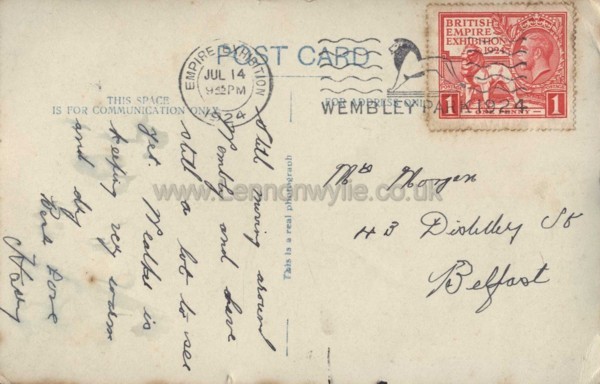 POST CARD
THIS SPACE
IS FOR COMMUNICATION ONLY
FOR ADDRESS ONLY
EMPIRE EXHIBITION
JUL 14
PM
1924
WEMBLEY PARK 1924
BRITISH
EMPIRE
EXHIBITION
1924
1
1
ONE PENNY
Still moving around
Wembley and have
still a lot to see
yet. Weather is
keeping very warm
and dry
Best Love
Harry
This is a real photograph
Mrs Morgan
43 Distillery St
Belfast
www.Lennonwylie.co.uk